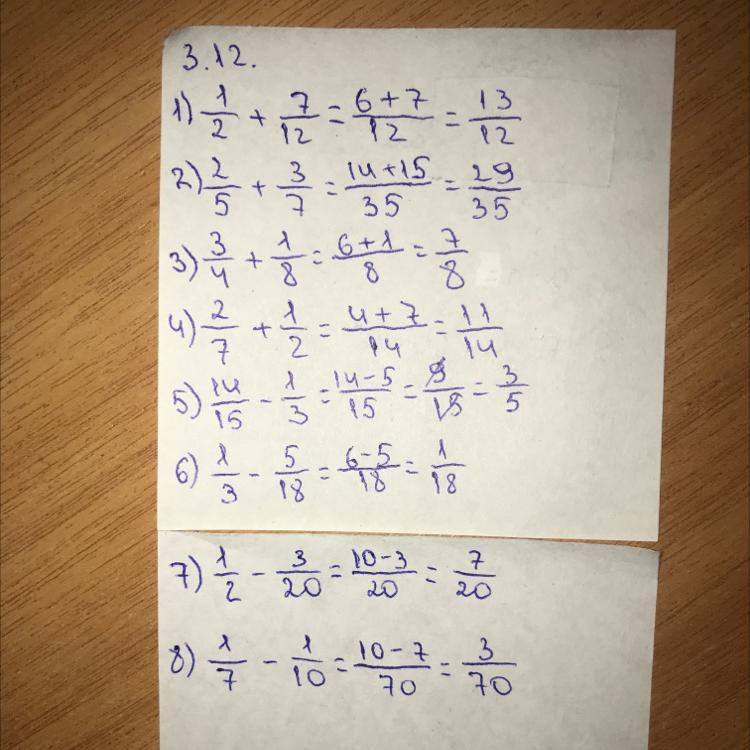 3.12.
1) 1/2 + 7/12 = (6+7)/12 = 13/12
2) 2/5 + 3/7 = (14+15)/35 = 29/35
3) 3/4 + 1/8 = (6+1)/8 = 7/8
4) 2/7 + 1/2 = (4+7)/14 = 11/14
5) 14/15 - 1/3 = (14-5)/15 = 9/15 = 3/5
6) 1/3 - 5/18 = (6-5)/18 = 1/18
7) 1/2 - 3/20 = (10-3)/20 = 7/20
8) 1/7 - 1/10 = (10-7)/70 = 3/70